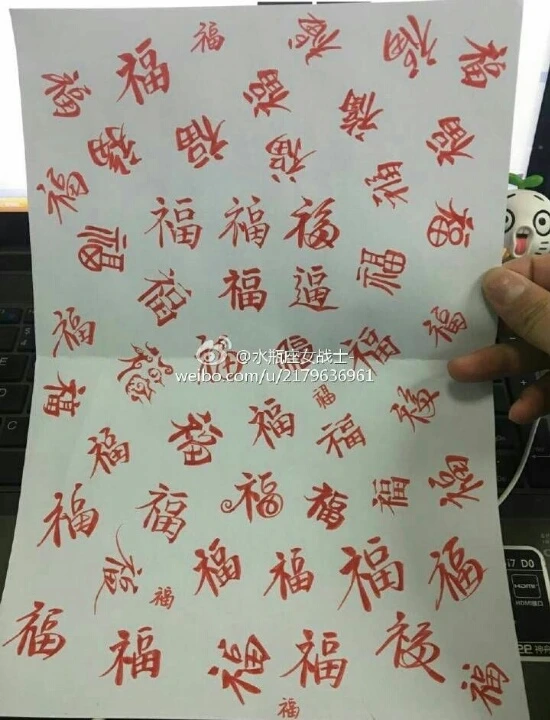 福 福 福 福
福 福 福 福
福 福 福 福
福 福
福 福 福 福 福
福 福 逼 福
福 福 福 福 福 福
@水瓶座女战士
weibo.com/u/2179636961
福 福 福
福 福 福 福
福 福 福 福 福 福
福 福 福 福 福 福
福 福 福 福 福 福
福
i7 D0
HDMI
HDMI接口